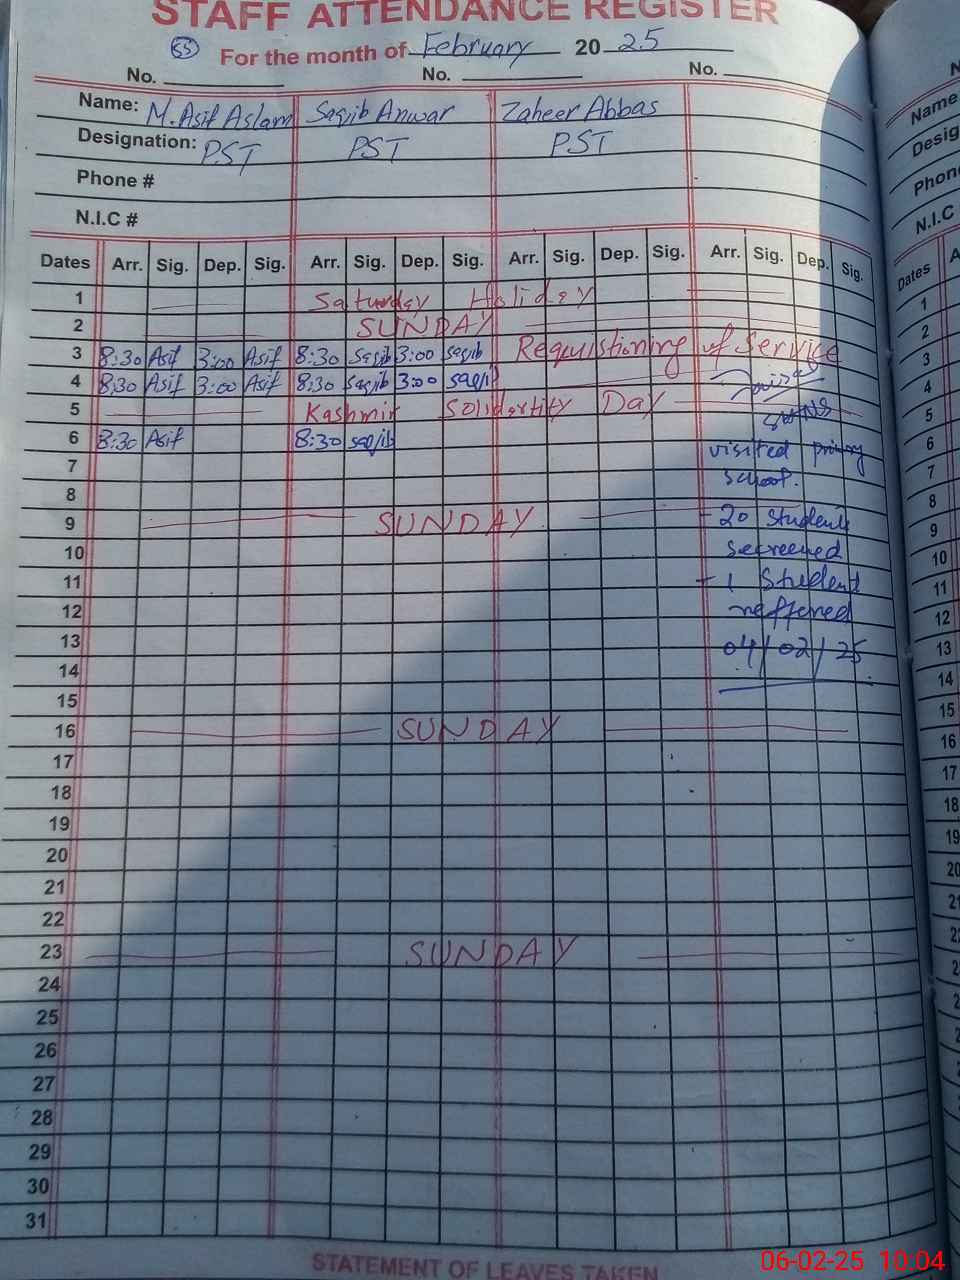 STAFF ATTENDANCE REGISTER
55 For the month of February 20 25
No. No. No.
Name: M. Asif Aslam Saqib Anwar Zaheer Abbas
Designation: PST PST PST
Phone #
N.I.C #
Dates Arr. Sig. Dep. Sig. Arr. Sig. Dep. Sig. Arr. Sig. Dep. Sig. Arr. Sig. Dep. Sig.
1 Saturday Holiday
2 SUNDAY
3 8:30 Asif 3:00 Asif 8:30 Saqib 3:00 saqib Requistioning of Service
4 8:30 Asif 3:00 Asif 8:30 saqib 3:00 saqib
5 Kashmir Solidartity Day
6 8:30 Asif 8:30 saqib
visited primary
7
school.
8
9 SUNDAY
- 20 Students
10
secreened
11
- 1 Student
12
reffered
13
04/02/25
14
15
16 SUNDAY
17
18
19
20
21
22
23 SUNDAY
24
25
26
27
28
29
30
31
STATEMENT OF LEAVES TAKEN
06-02-25 10:04
Name
Desig
Phon
N.I.C
Dates A
1
2
3
4
5
6
7
8
9
10
11
12
13
14
15
16
17
18
19
20